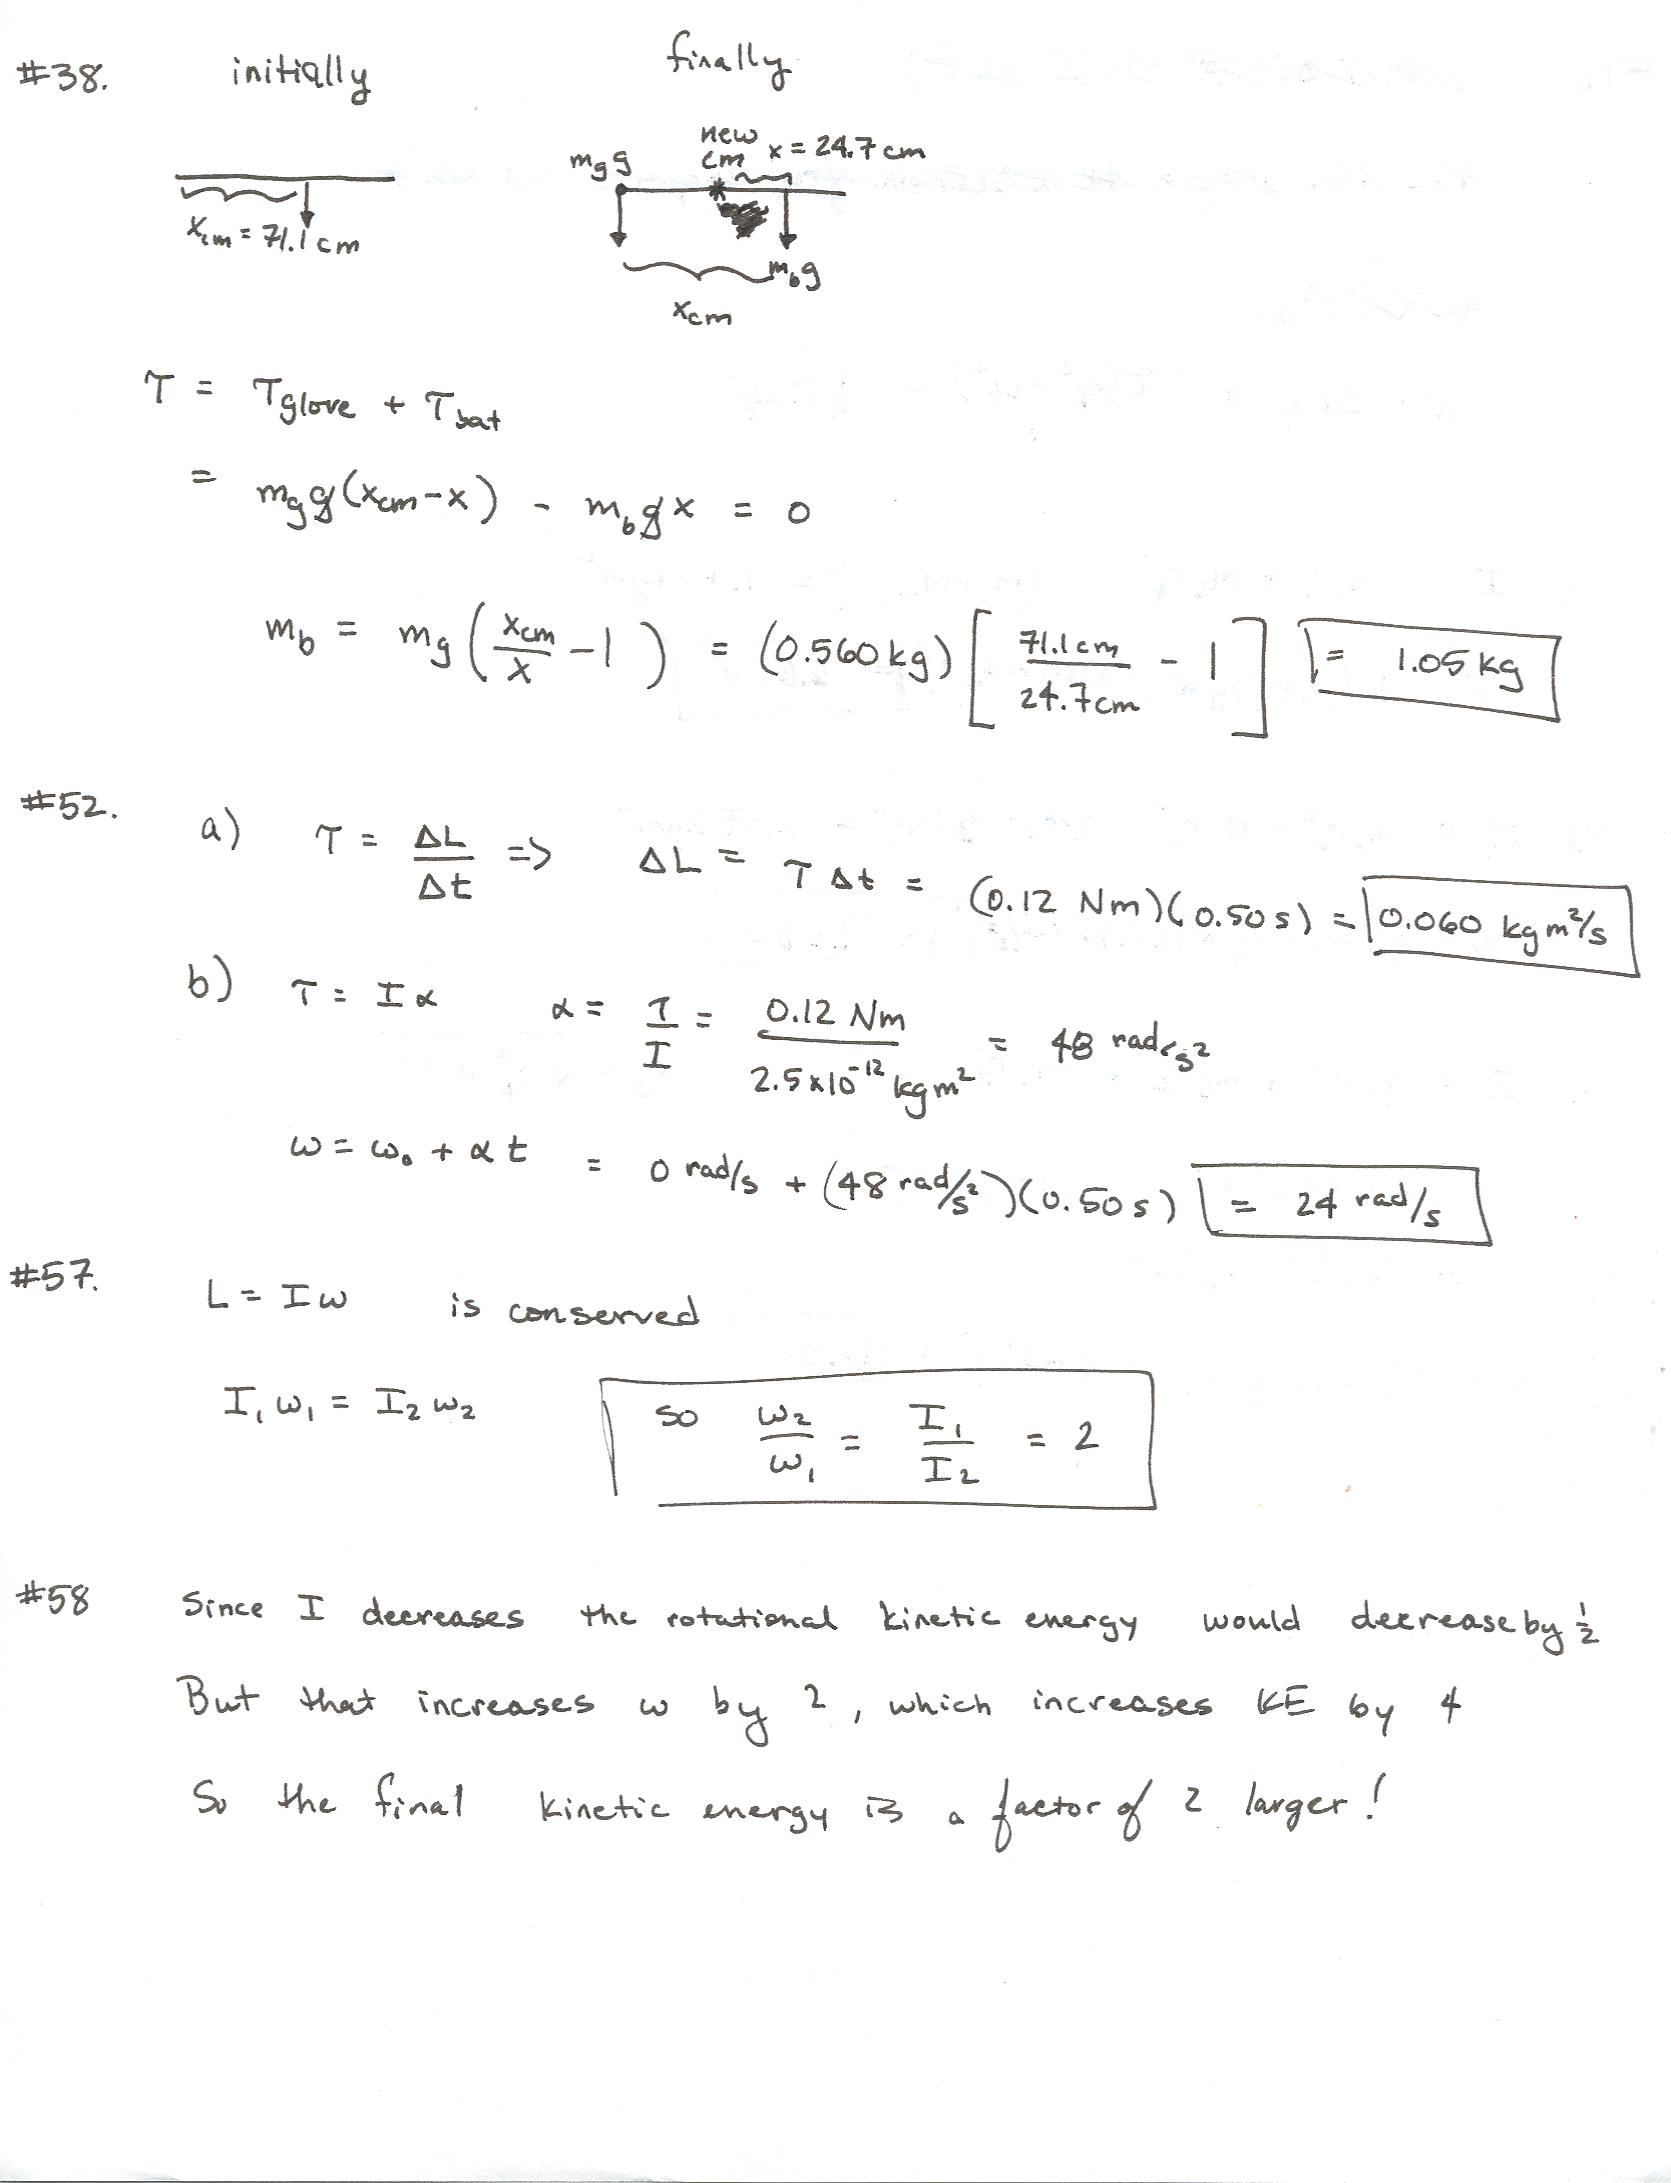 #38. initially finally
mgg new cm x = 24.7 cm
xcm = 71.1 cm
mbg
xcm
τ = τglove + τbat
= mgg(xcm-x) - mbgx = 0
mb = mg(xcm/x - 1) = (0.560 kg)[71.1cm/24.7cm - 1] = 1.05 kg
#52. a) τ = ΔL/Δt => ΔL = τ Δt = (0.12 Nm)(0.50 s) = 0.060 kg m²/s
b) τ = Iα α = τ/I = 0.12 Nm/2.5x10⁻¹² kg m² = 48 rad/s²
ω = ω₀ + αt = 0 rad/s + (48 rad/s²)(0.50 s) = 24 rad/s
#57. L = Iω is conserved
I₁ω₁ = I₂ω₂ so ω₂/ω₁ = I₁/I₂ = 2
#58 Since I decreases the rotational kinetic energy would decrease by ½
But that increases ω by 2, which increases KE by 4
So the final kinetic energy is a factor of 2 larger!